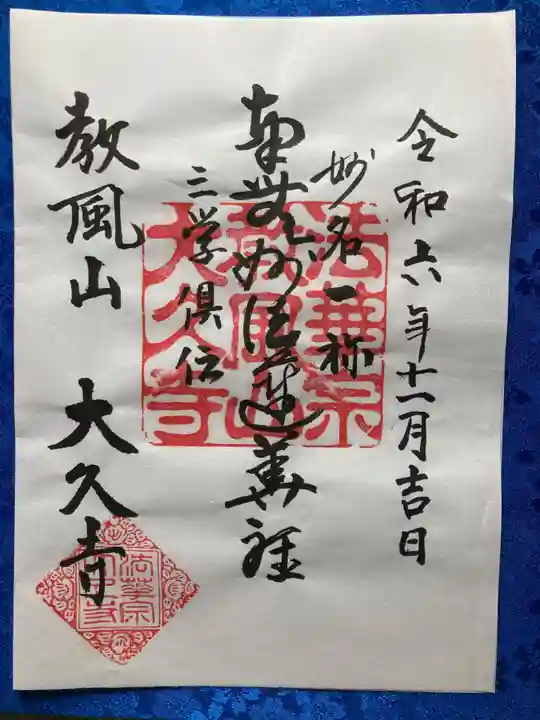 令和六年十一月吉日
妙名一称
南無妙法蓮華経
三学倶伝
教風山 大久寺
法華宗
教風山
大久寺
法華宗